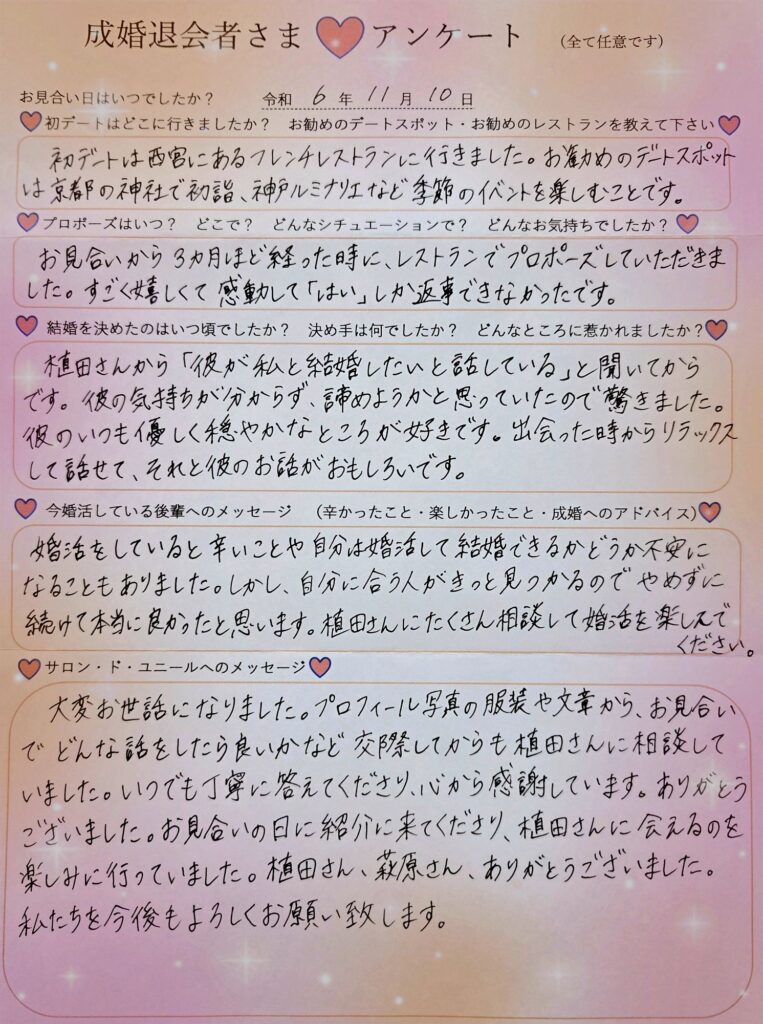 成婚退会者さま アンケート （全て任意です）
お見合い日はいつでしたか？ 令和 6 年 11 月 10 日
初デートはどこに行きましたか？ お勧めのデートスポット・お勧めのレストランを教えて下さい
初デートは西宮にあるフレンチレストランに行きました。お勧めのデートスポット
は京都の神社で初詣、神戸ルミナリエなど季節のイベントを楽しむことです。
プロポーズはいつ？ どこで？ どんなシチュエーションで？ どんなお気持ちでしたか？
お見合いから3カ月ほど経った時に、レストランでプロポーズしていただきま
した。すごく嬉しくて感動して「はい」しか返事できなかったです。
結婚を決めたのはいつ頃でしたか？ 決め手は何でしたか？ どんなところに惹かれましたか？
植田さんから「彼が私と結婚したいと話している」と聞いてから
です。彼の気持ちが分からず、諦めようかと思っていたので驚きました。
彼のいつも優しく穏やかなところが好きです。出会った時からリラックス
して話せて、それと彼のお話がおもしろいです。
今婚活している後輩へのメッセージ （辛かったこと・楽しかったこと・成婚へのアドバイス）
婚活をしていると辛いことや自分は婚活して結婚できるかどうか不安に
なることもありました。しかし、自分に合う人がきっと見つかるのでやめずに
続けて本当に良かったと思います。植田さんにたくさん相談して婚活を楽しんで
ください。
サロン・ド・ユニールへのメッセージ
大変お世話になりました。プロフィール写真の服装や文章から、お見合い
でどんな話をしたら良いかなど交際してからも植田さんに相談して
いました。いつでも丁寧に答えてくださり、心から感謝しています。ありがとう
ございました。お見合いの日に紹介に来てくださり、植田さんに会えるのを
楽しみに行っていました。植田さん、萩原さん、ありがとうございました。
私たちを今後もよろしくお願い致します。